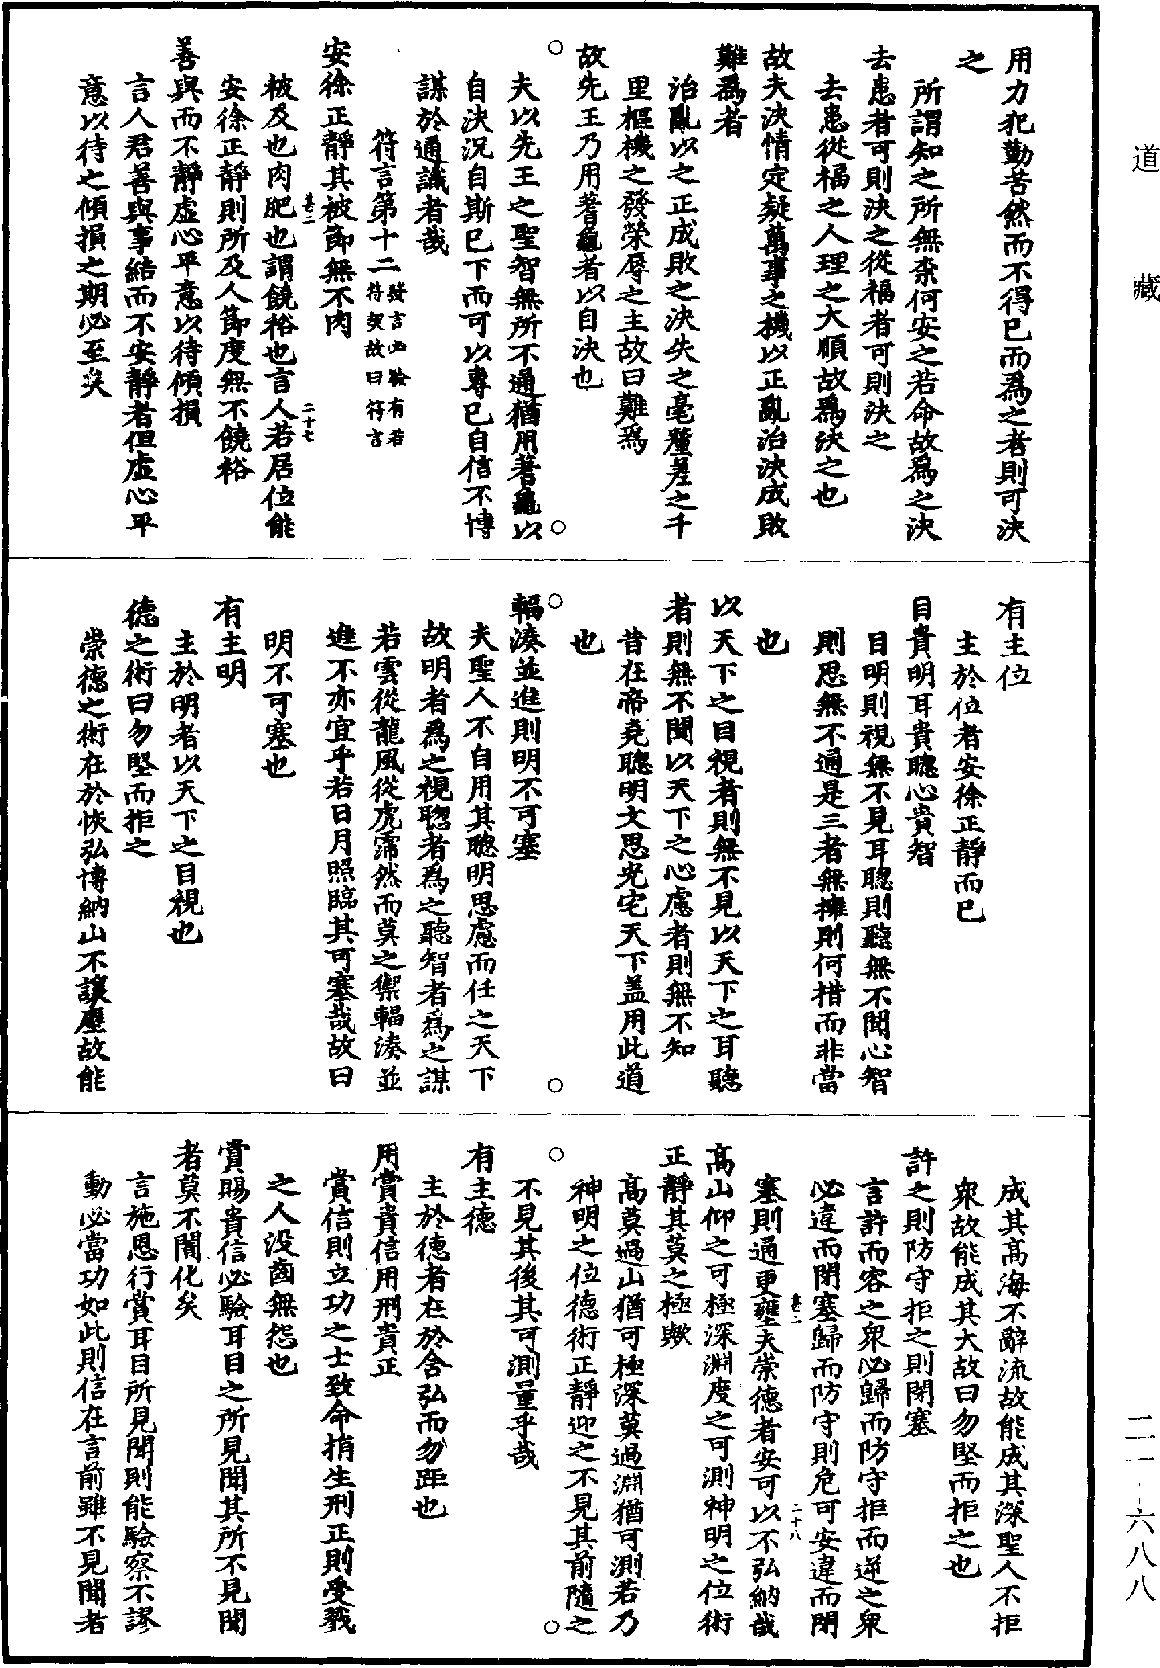 道藏
用力犯勤苦然而不得已而為之者則可決
之
所謂知之所無柰何安之若命故為之決
去患者可則決之從福者可則決之
去患從福之人理之大順故為決之也
故夫決情定疑萬事之機以正亂治決成敗
難為者
治亂以之正成敗之決失之毫釐差之千
里樞機之發榮辱之主故曰難為
故先王乃用蓍龜者以自決也
夫以先王之聖智無所不通猶用蓍龜以
自決況自斯已下而可以專已自信不博
謀於通識者哉
符言第十二發言必驗有若符契故曰符言
安徐正靜其被節無不肉
被及也肉肥也謂饒裕也言人若居位能
卷二
二十七
安徐正靜則所及人節度無不饒裕
善與而不靜虛心平意以待傾損
言人君善與事結而不安靜者但虛心平
意以待之傾損之期必至矣
有主位
主於位者安徐正靜而已
目貴明耳貴聰心貴智
目明則視無不見耳聰則聽無不聞心智
則思無不通是三者無擁則何措而非當
也
以天下之目視者則無不見以天下之耳聽
者則無不聞以天下之心慮者則無不知
昔在帝堯聰明文思光宅天下蓋用此道
也
輻湊並進則明不可塞
夫聖人不自用其聰明思慮而任之天下
故明者為之視聰者為之聽智者為之謀
若雲從龍風從虎霈然而莫之禦輻湊並
進不亦宜乎若日月照臨其可塞哉故曰
明不可塞也
有主明
主於明者以天下之目視也
德之術曰勿堅而拒之
崇德之術在於恢弘博納山不讓塵故能
成其高海不辭流故能成其深聖人不拒
眾故能成其大故曰勿堅而拒之也
許之則防守拒之則閉塞
言許而容之眾必歸而防守拒而逆之眾
必違而閉塞歸而防守則危可安違而閉
卷二
二十八
塞則通更壅夫崇德者安可以不弘納哉
高山仰之可極深淵度之可測神明之位術
正靜其莫之極歟
高莫過山猶可極深莫過淵猶可測若乃
神明之位德術正靜迎之不見其前隨之
不見其後其可測量乎哉
有主德
主於德者在於含弘而勿距也
用賞貴信用刑貴正
賞信則立功之士致命捐生刑正則受戮
之人沒齒無怨也
賞賜貴信必驗耳目之所見聞其所不見聞
者莫不闇化矣
言施恩行賞耳目所見聞則能驗察不謬
動必當功如此則信在言前雖不見聞者
二一-六八八